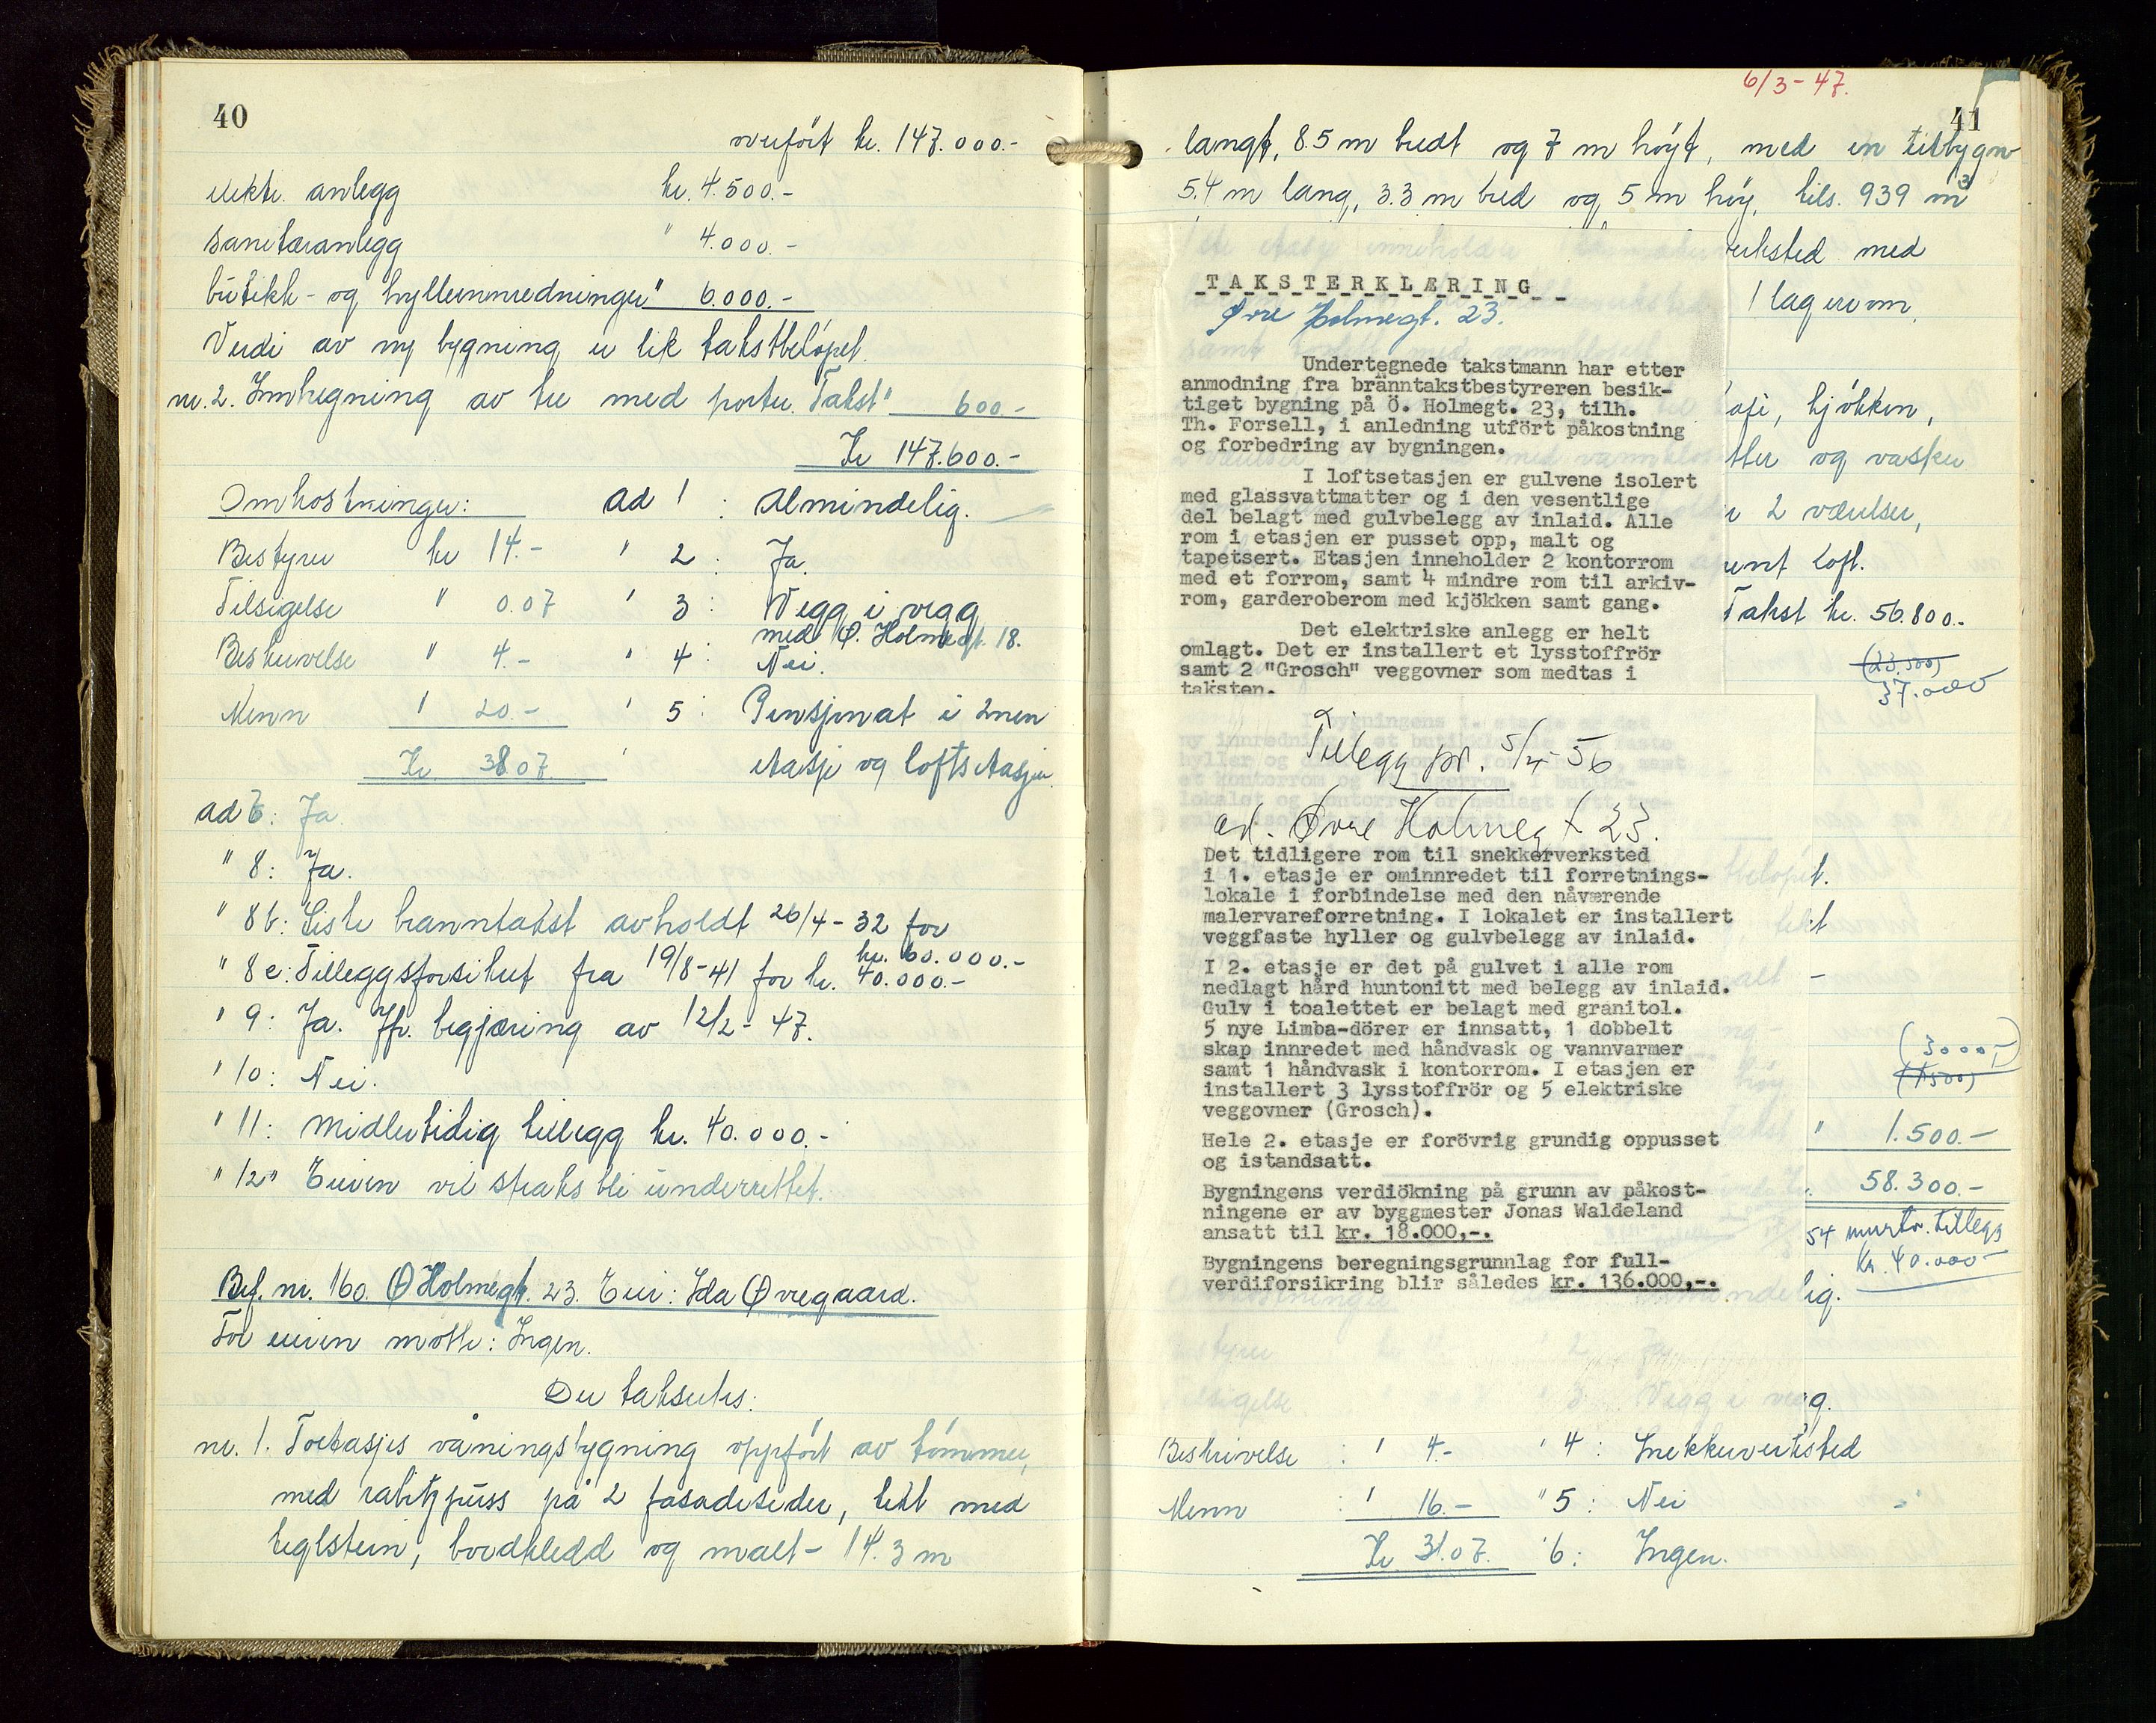 40
overfört kr. 147.000.-
elektr. anlegg kr. 4.500.-
sanitæranlegg " 4.000.-
butikk- og hylleinnredninger " 6.000.-
Verdi av ny bygning er lik takstbelöpet.
nr. 2. Innhegning av tre med porter. Takst " 600.-
Kr 147.600.-
Omkostninger: ad 1 : Almindelig.
Bestyrer kr 14.- " 2 : Ja.
Tilsigelse " 0.07 " 3 : Vegg i vegg
med Ø. Holmegt. 18.
Beskrivelse " 4.- " 4 : Nei.
Menn " 20.- " 5 : Pensjonat i 2nen
Kr. 38.07. " etasje og loftsetasjen.
ad 6: Ja.
" 8: Ja.
" 8b: Siste branntakst avholdt 26/4-32 for
kr. 60.000.-
" 8c: Tilleggsforsikret fra 19/8-41 for kr. 40.000.-
" 9: Ja. Jfr. begjæring av 12/2-47.
" 10: Nei.
" 11: Midlertidig tillegg kr. 40.000.-
" 12" Eieren vil straks bli underrettet.
Bef. nr. 160. Ø Holmegt. 23. Eier: Ida Øvregaard.
For eieren møtte: Ingen.
Der takseres:
nr. 1. Toetasjes våningsbygning oppfört av tömmer,
med rabitzpuss på 2 fasadesider, tekt med
teglstein, bordkledd og malt - 14.3 m
6/3-47.
41
langt, 8.5 m bredt og 7 m höyt, med en tilbygn
5.4 m lang, 3.3 m bred og 5 m höy, tils. 939 m3
erksted med
1 lagerrom,
kjökken,
tter og vasker
r 2 værelser,
loft.
Takst kr. 56.800.-
(23.500)
37.000
TAKSTERKLÆRING
Øvre Holmegt. 23.
Undertegnede takstmann har etter
anmodning fra bränntakstbestyreren besik-
tiget bygning på Ö. Holmegt. 23, tilh.
Th. Forsell, i anledning utfört påkostning
og forbedring av bygningen.
I loftsetasjen er gulvene isolert
med glassvattmatter og i den vesentlige
del belagt med gulvbelegg av inlaid. Alle
rom i etasjen er pusset opp, malt og
tapetsert. Etasjen inneholder 2 kontorrom
med et forrom, samt 4 mindre rom til arkiv-
rom, garderoberom med kjökken samt gang.
Det elektriske anlegg er helt
omlagt. Det er installert et lysstoffrör
samt 2 "Grosch" veggovner som medtas i
taksten.
Tillegg pr. 5/4-56
ad. Øvre Holmegt 23.
Det tidligere rom til snekkerverksted
i 1. etasje er ominnredet til forretnings-
lokale i forbindelse med den nåværende
malervareforretning. I lokalet er installert
veggfaste hyller og gulvbelegg av inlaid.
I 2. etasje er det på gulvet i alle rom
nedlagt hård huntonitt med belegg av inlaid.
Gulv i toalettet er belagt med granitol.
5 nye Limba-dörer er innsatt, 1 dobbelt
skap innredet med håndvask og vannvarmer
samt 1 håndvask i kontorrom. I etasjen er
installert 3 lysstoffrör og 5 elektriske
veggovner (Grosch).
Hele 2. etasje er forövrig grundig oppusset
og istandsatt.
Bygningens verdiökning på grunn av påkost-
ningene er av byggmester Jonas Waldeland
ansatt til kr. 18.000,-.
Bygningens beregningsgrunnlag for full-
verdiforsikring blir således kr. 136.000,-.
(3000,-)
(1500)
" 1.500.-
58.300.-
54 tillegg
kr. 40.000-
ig.
gg.
Beskrivelse : " 4.- " 4 : Snekkerverksted
Menn : " 16.- " 5 : Nei
Kr 31.07. " 6 : Ingen.